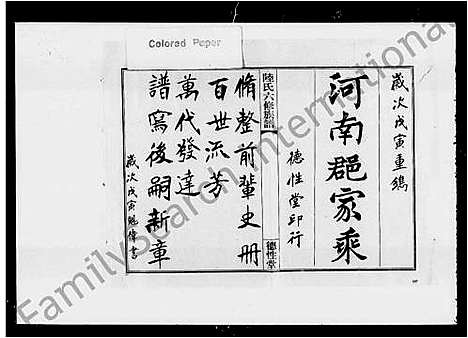 Colored Paper
歲次戊寅重鐫
河南郡家乘
德性堂印行
陸氏六修族譜
德性堂
脩整前輩史冊
百世流芳
萬代發達
譜寫後嗣新章
歲次戊寅魁偉書
FamilySearch International